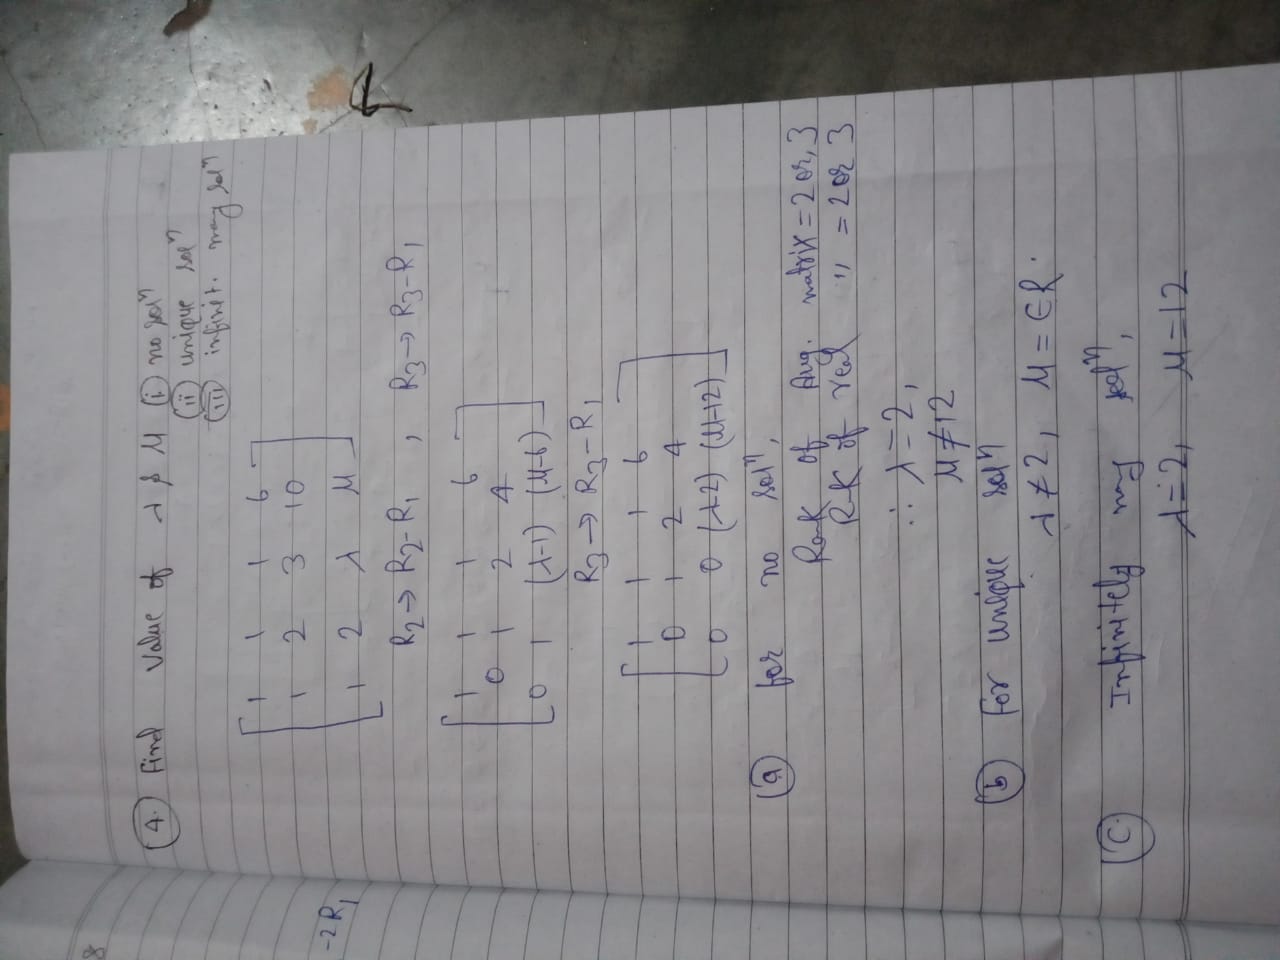 8
-2R₁
4. Find Value of λ & M (i) no solⁿ
(ii) unique solⁿ
(iii) infinit. many solⁿ
1 1 1 6
1 2 3 10
1 2 λ M
R₂ → R₂-R₁ , R₃ → R₃-R₁
1 1 1 6
0 1 2 4
0 1 (λ-1) (M-6)
R₃ → R₃-R₁
1 1 1 6
0 1 2 4
0 0 (λ-2) (M-12)
(a) for no solⁿ,
Rank of Aug. matrix = 2 or, 3
R-K of real " = 2 or 3
∴ λ = 2,
M ≠ 12
(b) For unique solⁿ
λ ≠ 2, M = ∈ R.
(C.) Infinitely may solⁿ,
λ = 2, M = 12